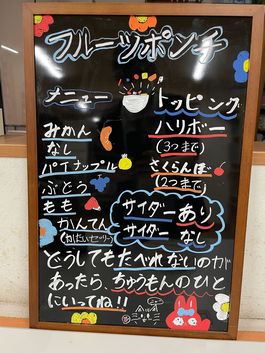 フルーツポンチ
メニュー
みかん
なし
パイナップル
ぶどう
もも
かんてん
トッピング
ハリボー
(3つまで)
さくらんぼ
(2つまで)
サイダー あり
サイダー なし
どうしてもたべれないのが
あったら、ちゅうもんのひと
にいってね!!